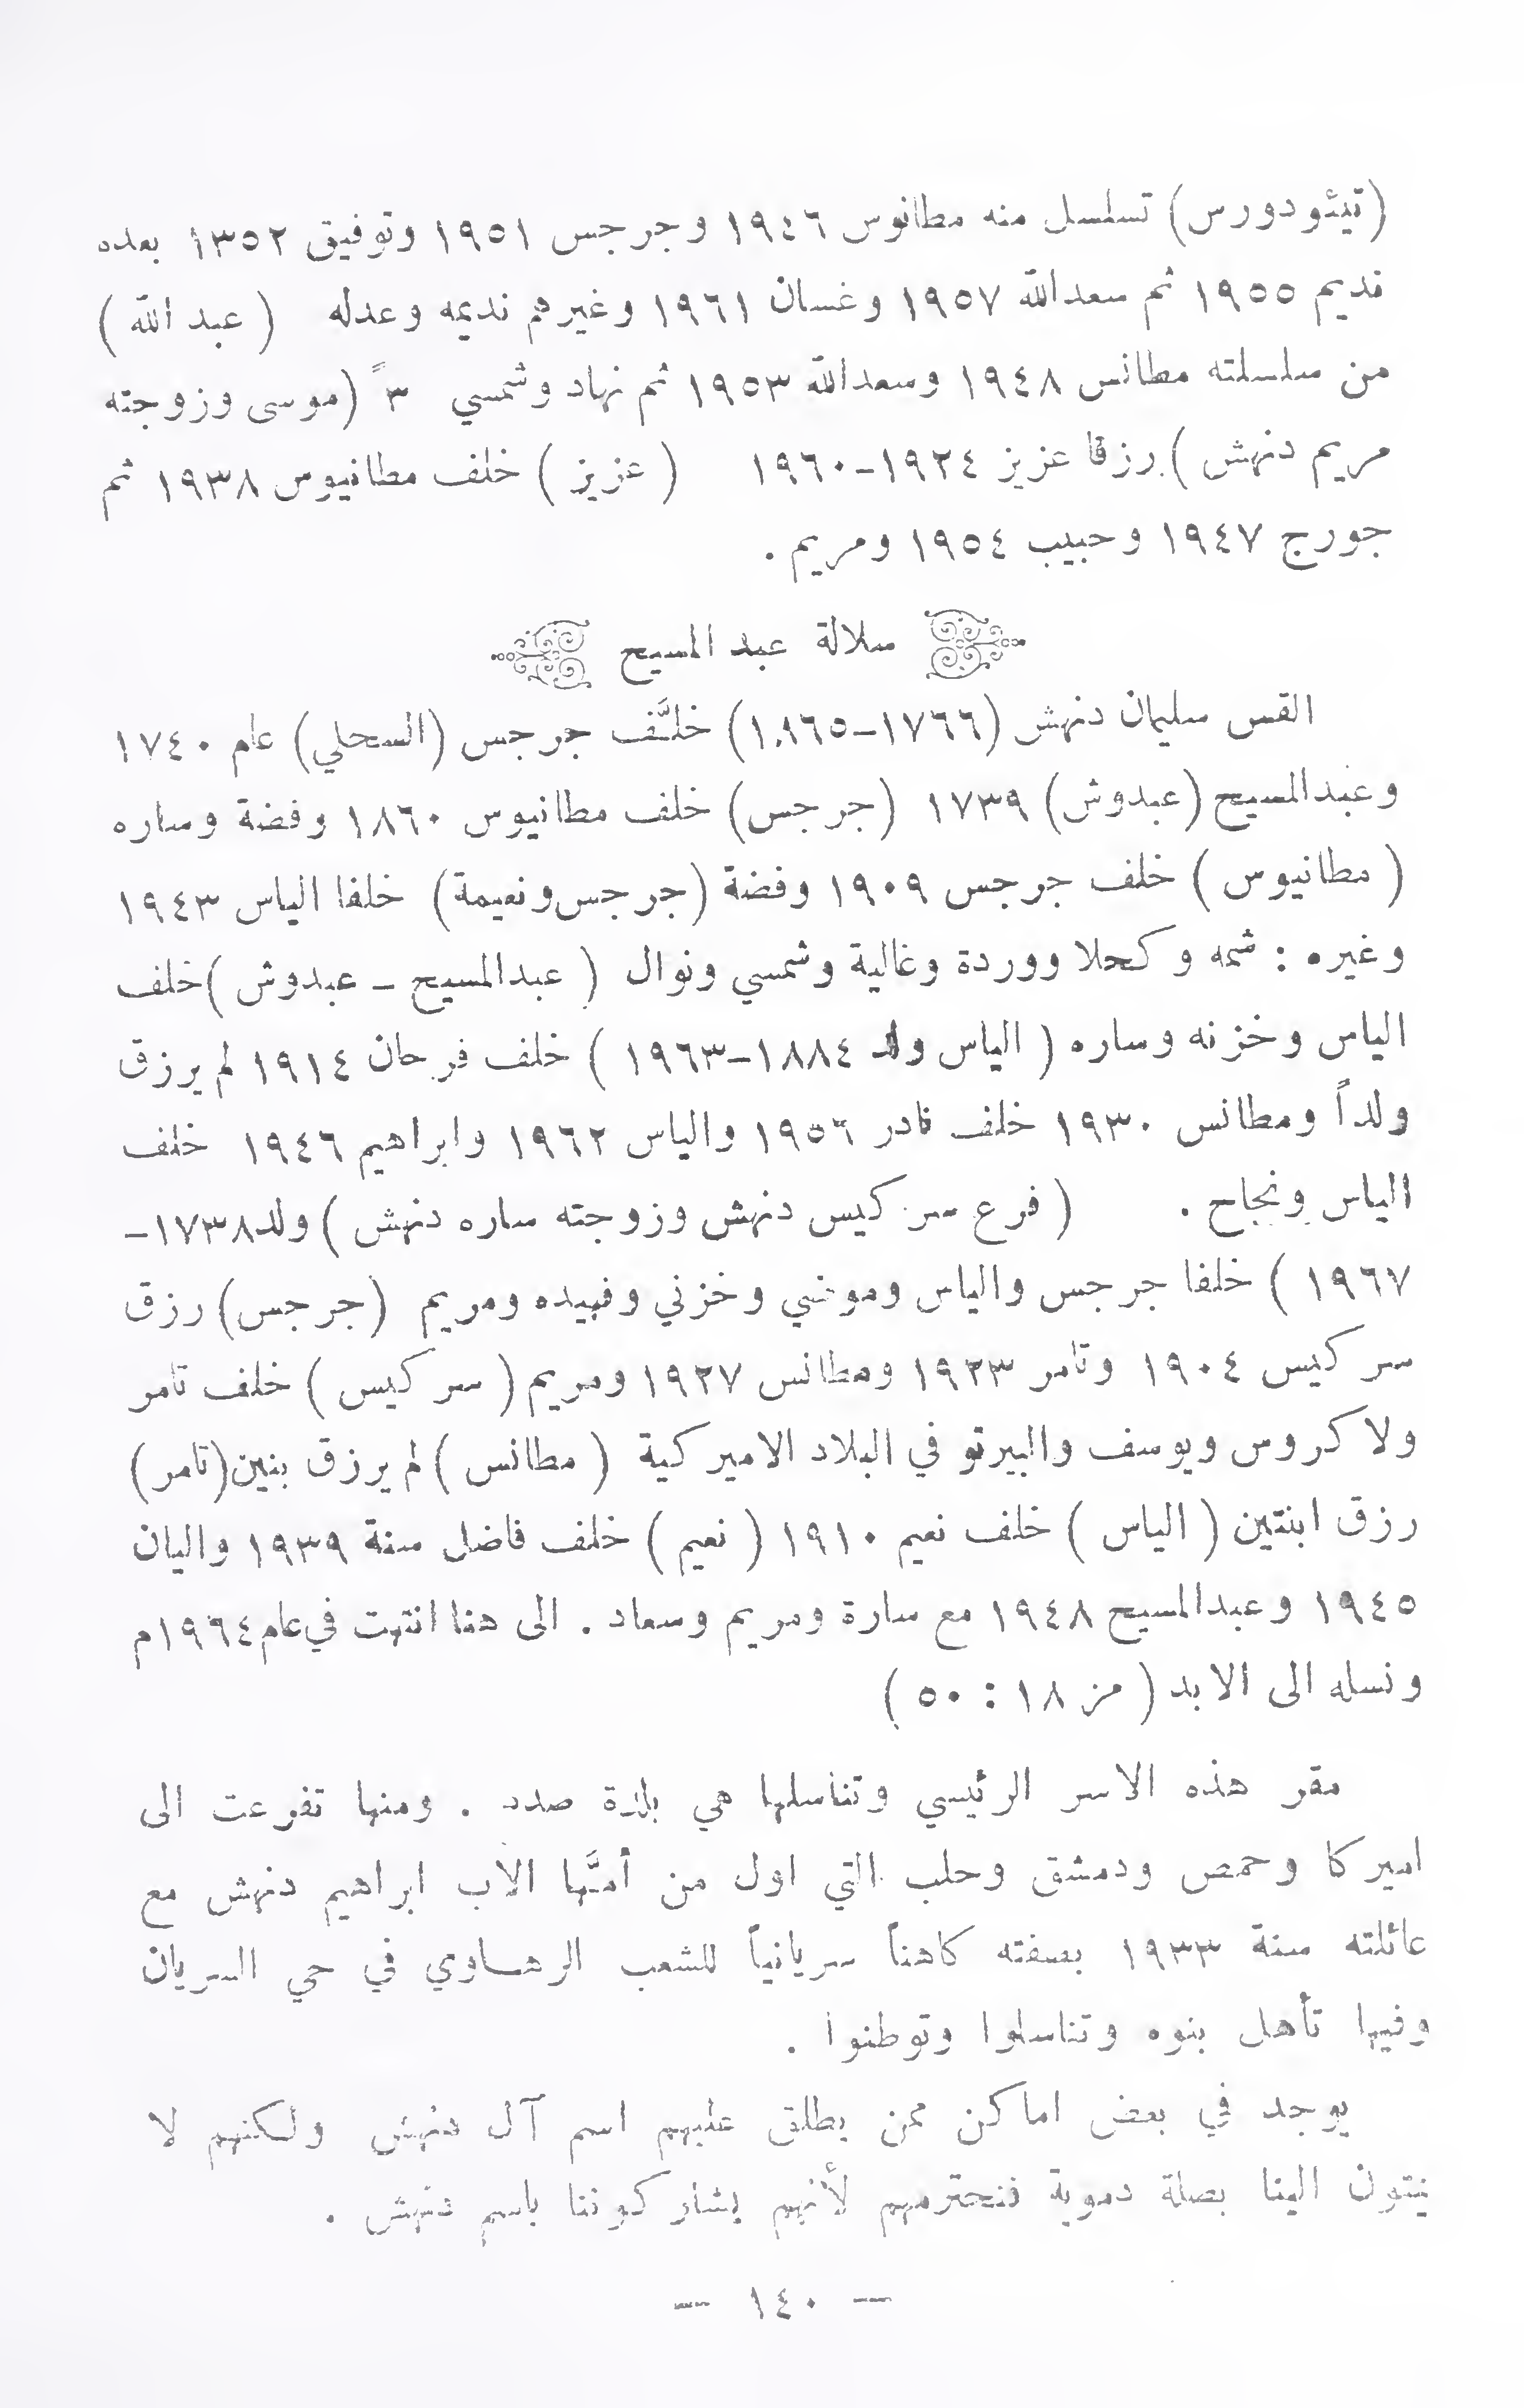 (تيئودورس) تسلسل منه مطانوس ١٩٤٦ وجرجس ١٩٥١ وتوفيق ١٣٥٢ بعده
نديم ١٩٥٥ ثم سعدالله ١٩٥٧ وغسان ١٩٦١ وغيرهم نديمه وعدله ( عبد الله )
من سلسلته مطانس ١٩٤٨ وسعدالله ١٩٥٣ ثم نهاد وشمسي ٣ً (موسى وزوجته
مريم دنهش ) رزقا عزيز ١٩٢٤-١٩٦٠ ( عزيز ) خلف مطانيوس ١٩٣٨ ثم
جورج ١٩٤٧ وحبيب ١٩٥٤ ومريم .
سلالة عبد المسيح
القس سليمان دنهش (١٧٦٦-١٨٦٥) خلَّف جرجس (السحلي) عام ١٧٤٠
وعبدالمسيح (عبدوش) ١٧٣٩ (جرجس) خلف مطانيوس ١٨٦٠ وفضة وساره
( مطانيوس ) خلف جرجس ١٩٠٩ وفضة (جرجس ونعيمة) خلفا الياس ١٩٤٣
وغيره : شمه وكحلا ووردة وغالية وشمسي ونوال ( عبدالمسيح - عبدوش ) خلف
الياس وخزنه وساره ( الياس ولد ١٨٨٤-١٩٦٣ ) خلف فرحان ١٩١٤ لم يرزق
ولداً ومطانس ١٩٣٠ خلف نادر ١٩٥٦ والياس ١٩٦٢ وابراهيم ١٩٤٦ خلف
الياس ونجاح . ( فرع سركيس دنهش وزوجته ساره دنهش ) ولد ١٧٣٨-
١٩٦٧ ) خلفا جرجس والياس وموسي وخزني وفهيده ومريم (جرجس) رزق
سركيس ١٩٠٤ وتامر ١٩٢٣ ومطانس ١٩٢٧ ومريم ( سركيس ) خلف تامر
ولا كروس ويوسف والبيرتو في البلاد الاميركية ( مطانس ) لم يرزق بنين (تامر)
رزق ابنتين ( الياس ) خلف نعيم ١٩١٠ ( نعيم ) خلف فاضل سنة ١٩٣٩ واليان
١٩٤٥ وعبدالمسيح ١٩٤٨ مع سارة ومريم وسعاد . الى هنا انتهت في عام ١٩٦٤م
ونسله الى الابد ( مز ١٨ : ٥٠ )
مقر هذه الاسر الرئيسي وتناسلها هي بلدة صدد . ومنها تفرعت الى
اميركا وحمص ودمشق وحلب التي اول من أمَّها الأب ابراهيم دنهش مع
عائلته سنة ١٩٣٣ بصفته كاهناً سريانياً للشعب الرهاوي في حي السريان
وفيها تأهل بنوه وتناسلوا وتوطنوا .
يوجد في بعض اماكن ممن يطلق عليهم اسم آل دنهش ولكنهم لا
ينتون الينا بصلة دموية فنحترمهم لأنهم يشاركوننا باسم دنهش .
— ١٤٠ —